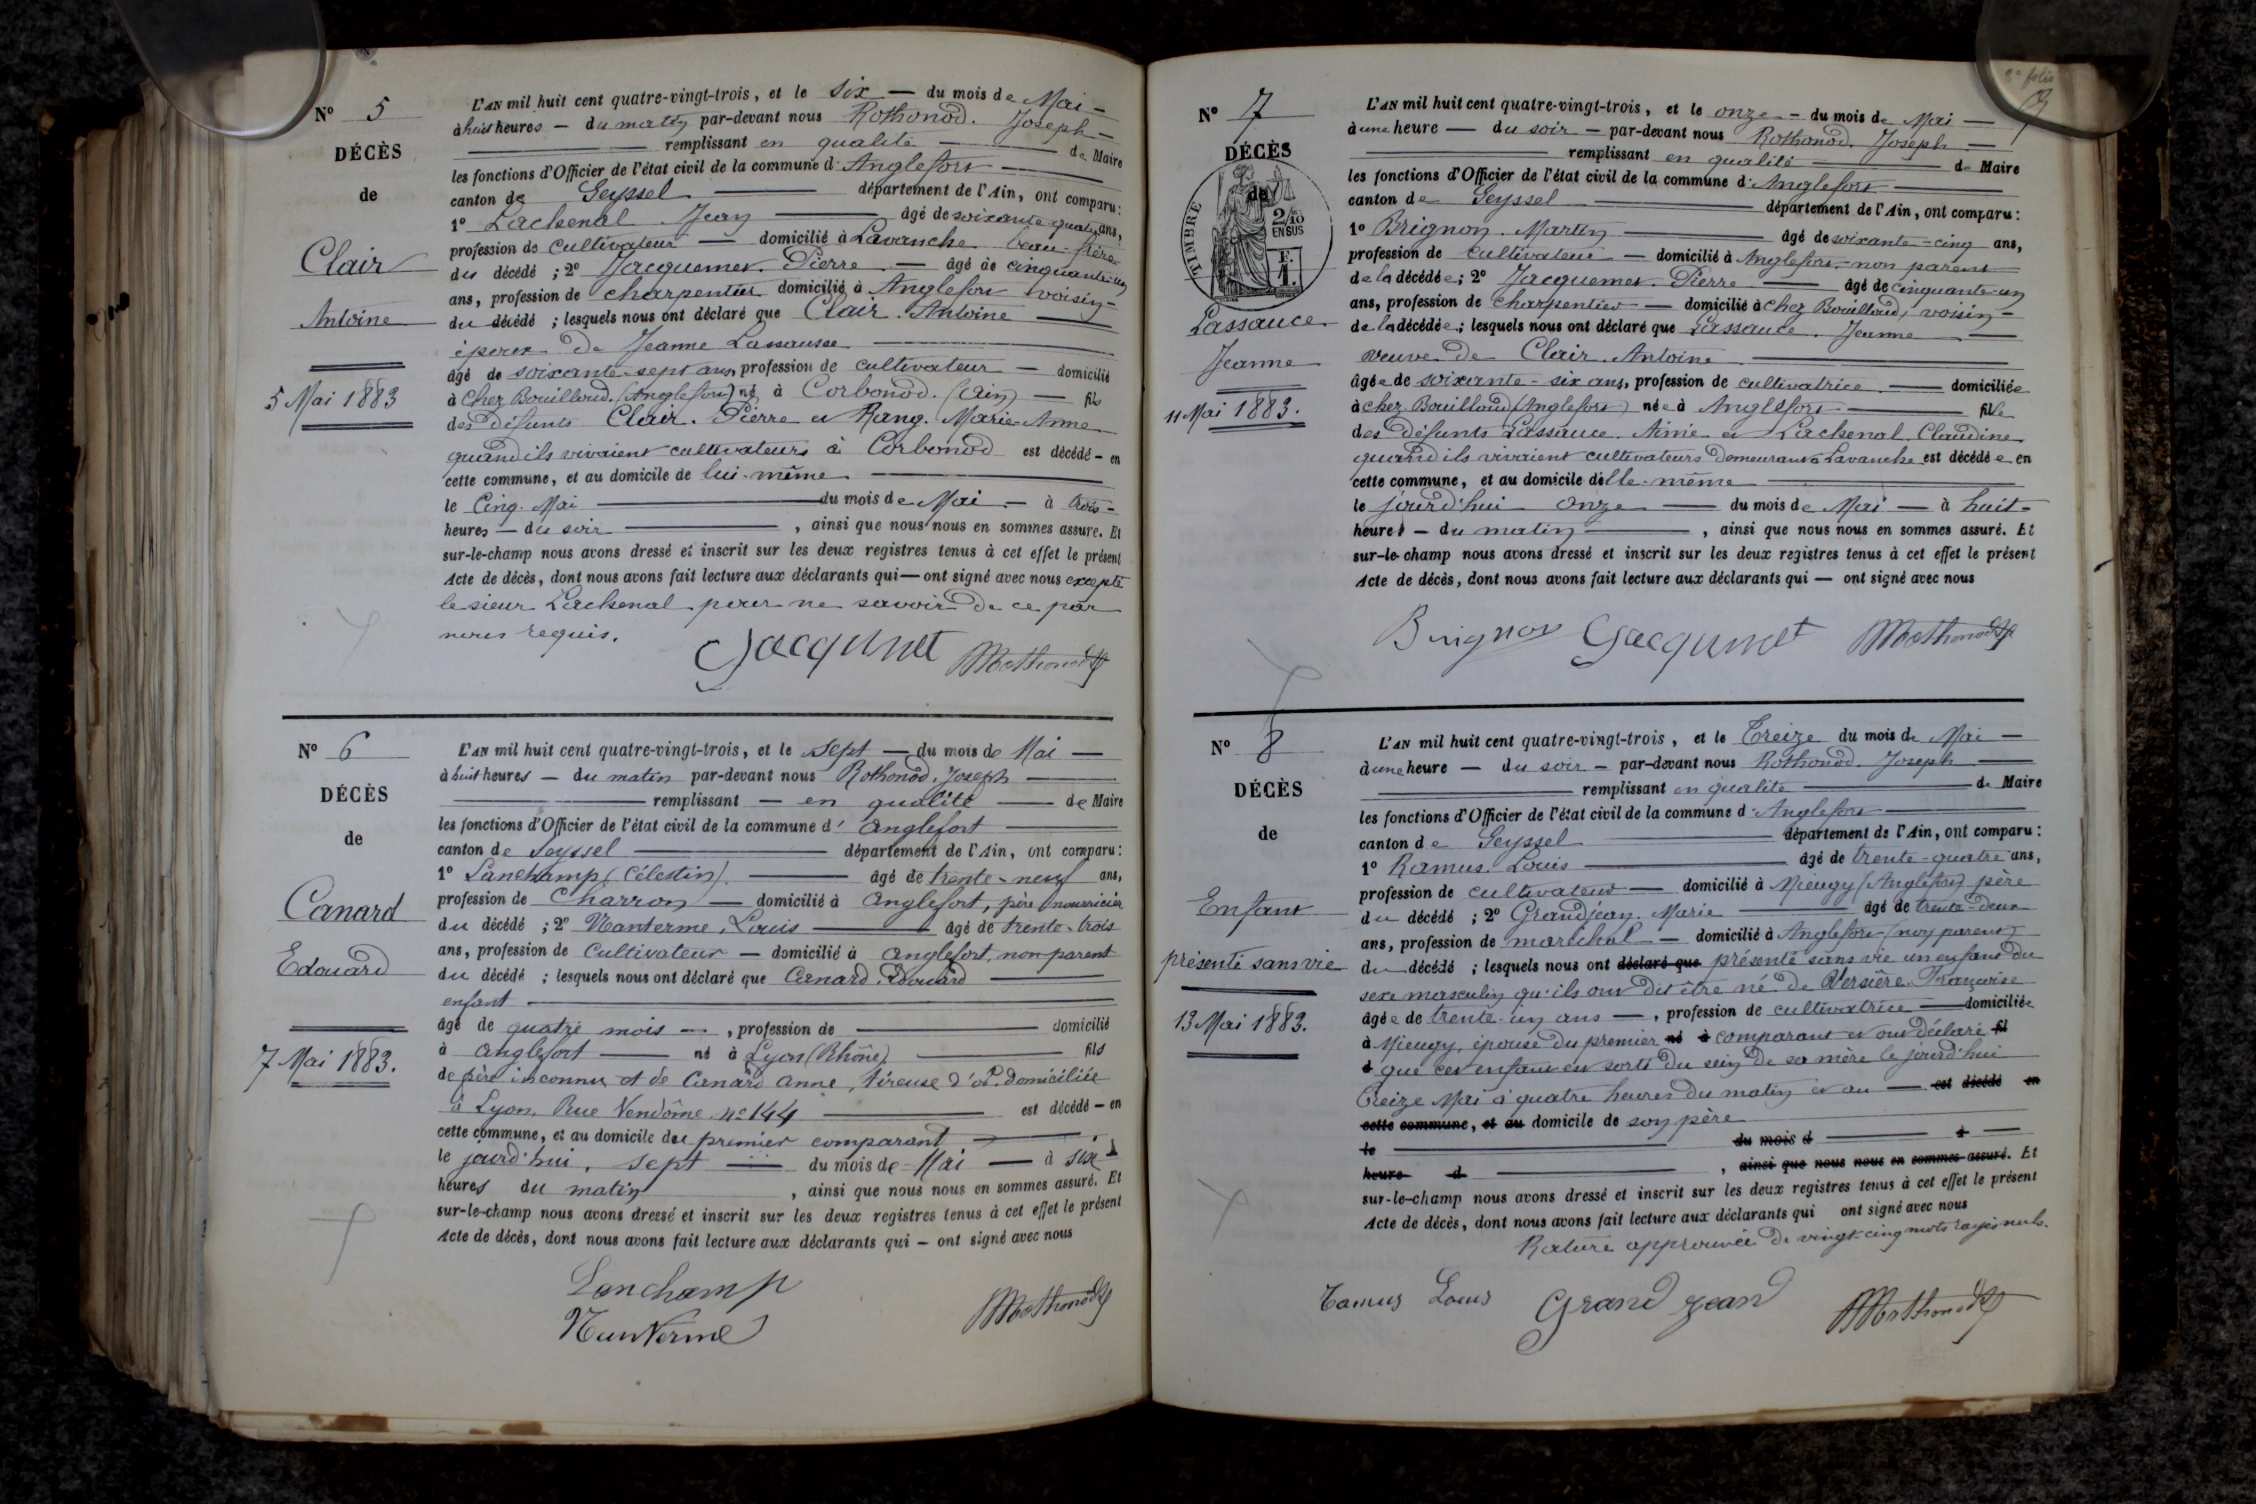 N° 5
DÉCÈS
de
Clair
Antoine
5 Mai 1883
L'AN mil huit cent quatre-vingt-trois, et le six — du mois de Mai —
à huit heures — du matin par-devant nous Rothonod. Joseph —
remplissant en qualité — de Maire
les fonctions d'Officier de l'état civil de la commune d'Anglefort —
canton de Seyssel — département de l'Ain, ont comparu :
1° Lachenal Jean — âgé de soixante-quatre ans,
profession de cultivateur — domicilié à Lavanche beau-frère
du décédé ; 2° Jacquemet. Pierre — âgé de cinquante-un
ans, profession de charpentier domicilié à Anglefort voisin —
du décédé ; lesquels nous ont déclaré que Clair. Antoine —
époux de Jeanne Lassausse —
âgé de soixante-sept ans, profession de cultivateur — domicilié
à Chez Bouilloud. (Anglefort) né à Corbonod. (Ain) — fils
des défunts Clair. Pierre et Rang. Marie-Anne
quand ils vivaient cultivateurs à Corbonod est décédé — en
cette commune, et au domicile de lui-même —
le Cinq. Mai — du mois de Mai — à trois —
heures — du soir — , ainsi que nous nous en sommes assuré. Et
sur-le-champ nous avons dressé et inscrit sur les deux registres tenus à cet effet le présent
Acte de décès, dont nous avons fait lecture aux déclarants qui — ont signé avec nous excepté
le sieur Lachenal pour ne savoir de ce par
nous requis.
Jacqumet Rothonod J
N° 6
DÉCÈS
de
Canard
Edouard
7 Mai 1883.
L'AN mil huit cent quatre-vingt-trois, et le sept — du mois de Mai —
à huit heures — du matin par-devant nous Rothonod, Joseph —
remplissant — en qualité — de Maire
les fonctions d'Officier de l'état civil de la commune d' Anglefort —
canton de Seyssel — département de l'Ain, ont comparu :
1° Lanchamp (Célestin). — âgé de trente-neuf ans,
profession de Charron — domicilié à Anglefort, père nourricier
du décédé ; 2° Nanterme, Louis — âgé de trente-trois
ans, profession de Cultivateur — domicilié à Anglefort, non parent
du décédé ; lesquels nous ont déclaré que Canard, Edouard —
enfant —
âgé de quatre mois — , profession de — domicilié
à Anglefort — né à Lyon (Rhône) — fils
de père inconnu et de Canard Anne, tireuse d'or, domiciliée
à Lyon, Rue Vendôme n° 144 — est décédé — en
cette commune, et au domicile du premier comparant —
le jourd'hui, sept — du mois de Mai — à six
heures du matin , ainsi que nous nous en sommes assuré. Et
sur-le-champ nous avons dressé et inscrit sur les deux registres tenus à cet effet le présent
Acte de décès, dont nous avons fait lecture aux déclarants qui — ont signé avec nous
Lanchamp
Nanterme Rothonod J
2e folio
N° 7
DÉCÈS
de
TIMBRE
2/10
EN SUS
F.
1.
Lassauce
Jeanne
11 Mai 1883.
L'AN mil huit cent quatre-vingt-trois, et le onze — du mois de Mai —
à une heure — du soir — par-devant nous Rothonod. Joseph —
remplissant en qualité — de Maire
les fonctions d'Officier de l'état civil de la commune d'Anglefort —
canton de Seyssel — département de l'Ain, ont comparu :
1° Brignon. Martin — âgé de soixante-cinq ans,
profession de cultivateur — domicilié à Anglefort. non parent
de la décédée ; 2° Jacquemet. Pierre — âgé de cinquante-un
ans, profession de charpentier — domicilié à chez Bouilloud, voisin —
de la décédée ; lesquels nous ont déclaré que Lassauce. Jeanne —
veuve de Clair. Antoine —
âgée de soixante-six ans, profession de cultivatrice — domiciliée
à chez Bouilloud (Anglefort) née à Anglefort — fille
des défunts Lassauce. Aimé et Lachenal. Claudine
quand ils vivaient cultivateurs demeurant à Lavanche est décédée en
cette commune, et au domicile d'elle-même —
le jourd'hui onze — du mois de Mai — à huit —
heures — du matin — , ainsi que nous nous en sommes assuré. Et
sur-le-champ nous avons dressé et inscrit sur les deux registres tenus à cet effet le présent
Acte de décès, dont nous avons fait lecture aux déclarants qui — ont signé avec nous
Brignon Jacqumet Rothonod J
N° 8
DÉCÈS
de
Enfant
présenté sans vie
13 Mai 1883.
L'AN mil huit cent quatre-vingt-trois, et le Treize du mois de Mai —
à une heure — du soir — par-devant nous Rothonod. Joseph —
remplissant en qualité — de Maire
les fonctions d'Officier de l'état civil de la commune d'Anglefort —
canton de Seyssel — département de l'Ain, ont comparu :
1° Ramus. Louis — âgé de trente-quatre ans,
profession de cultivateur — domicilié à Mieugy (Anglefort) père
du décédé ; 2° Grandjean. Marie — âgé de trente-deux
ans, profession de maréchal — domicilié à Anglefort (non parent)
du décédé ; lesquels nous ont déclaré que présenté sans vie un enfant du
sexe masculin qu'ils ont dit être né de Versière. Françoise
âgée de trente-un ans — , profession de cultivatrice — domiciliée
à Mieugy, épouse du premier né à comparant et ont déclaré fil
d que cet enfant est sorti du sein de sa mère le jourd'hui
Treize Mai à quatre heures du matin et au — est décédé en
cette commune, et au domicile de son père
le — du mois d — à —
heure d — , ainsi que nous nous en sommes assuré. Et
sur-le-champ nous avons dressé et inscrit sur les deux registres tenus à cet effet le présent
Acte de décès, dont nous avons fait lecture aux déclarants qui ont signé avec nous
Rature approuvée de vingt-cinq mots rayés nuls.
Ramus Louis Grand jean Rothonod J